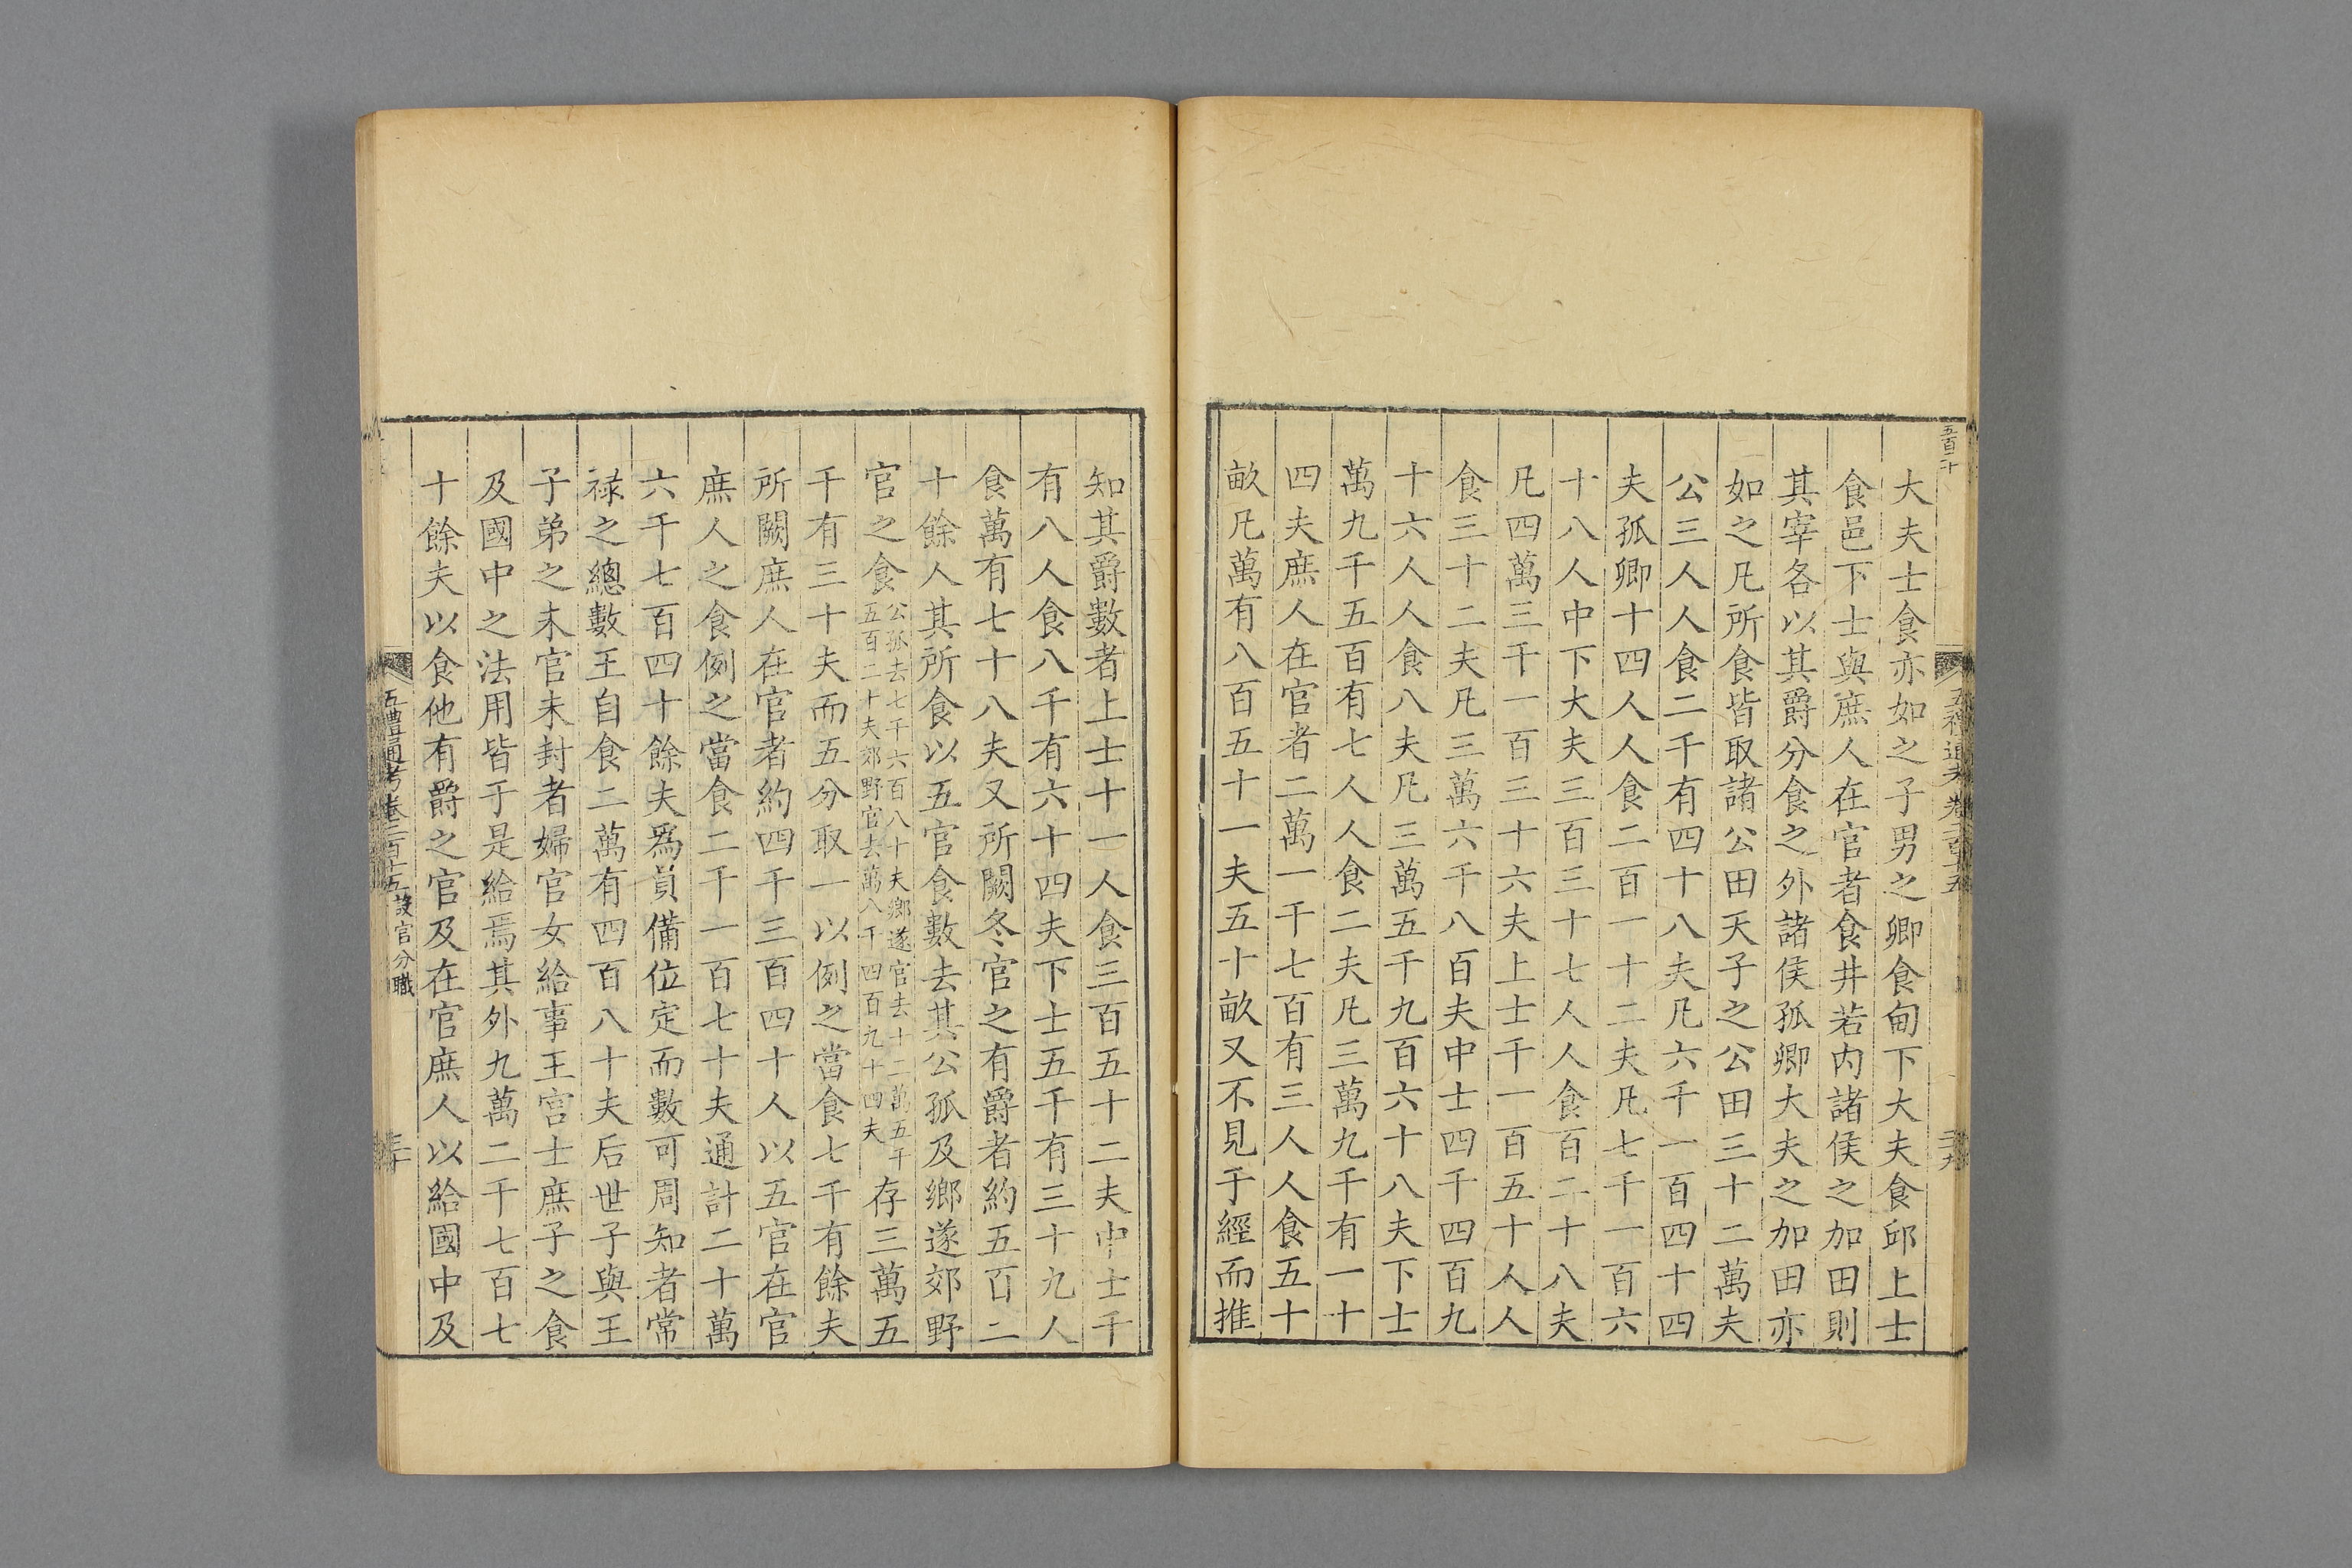 五百十
大夫士食亦如之子男之卿食甸下大夫食邱上士
食邑下士與庶人在官者食井若內諸侯之加田則
其宰各以其爵分食之外諸侯孤卿大夫之加田亦
如之凡所食皆取諸公田天子之公田三十二萬夫
公三人人食二千有四十八夫凡六千一百四十四
夫孤卿十四人人食二百一十二夫凡七千一百六
十八人中下大夫三百三十七人人食百二十八夫
凡四萬三千一百三十六夫上士千一百五十人人
食三十二夫凡三萬六千八百夫中士四千四百九
十六人人食八夫凡三萬五千九百六十八夫下士
萬九千五百有七人人食二夫凡三萬九千有一十
四夫庶人在官者二萬一千七百有三人人食五十
畝凡萬有八百五十一夫五十畝又不見于經而推
知其爵數者上士十一人食三百五十二夫中士千
有八人食八千有六十四夫下士五千有三十九人
食萬有七十八夫又所闕冬官之有爵者約五百二
十餘人其所食以五官食數去其公孤及鄉遂郊野
官之食公孤去七千六百八十夫鄉遂官去十二萬五千五百二十夫郊野官去萬八千四百九十四夫存三萬五
千有三十夫而五分取一以例之當食七千有餘夫
所闕庶人在官者約四千三百四十人以五官在官
庶人之食例之當食二千一百七十夫通計二十萬
六千七百四十餘夫爲員備位定而數可周知者常
祿之總數王自食二萬有四百八十夫后世子與王
子弟之未官未封者婦官女給事王宮士庶子之食
及國中之法用皆于是給焉其外九萬二千七百七
十餘夫以食他有爵之官及在官庶人以給國中及
五禮通考卷二百十五 設官分職